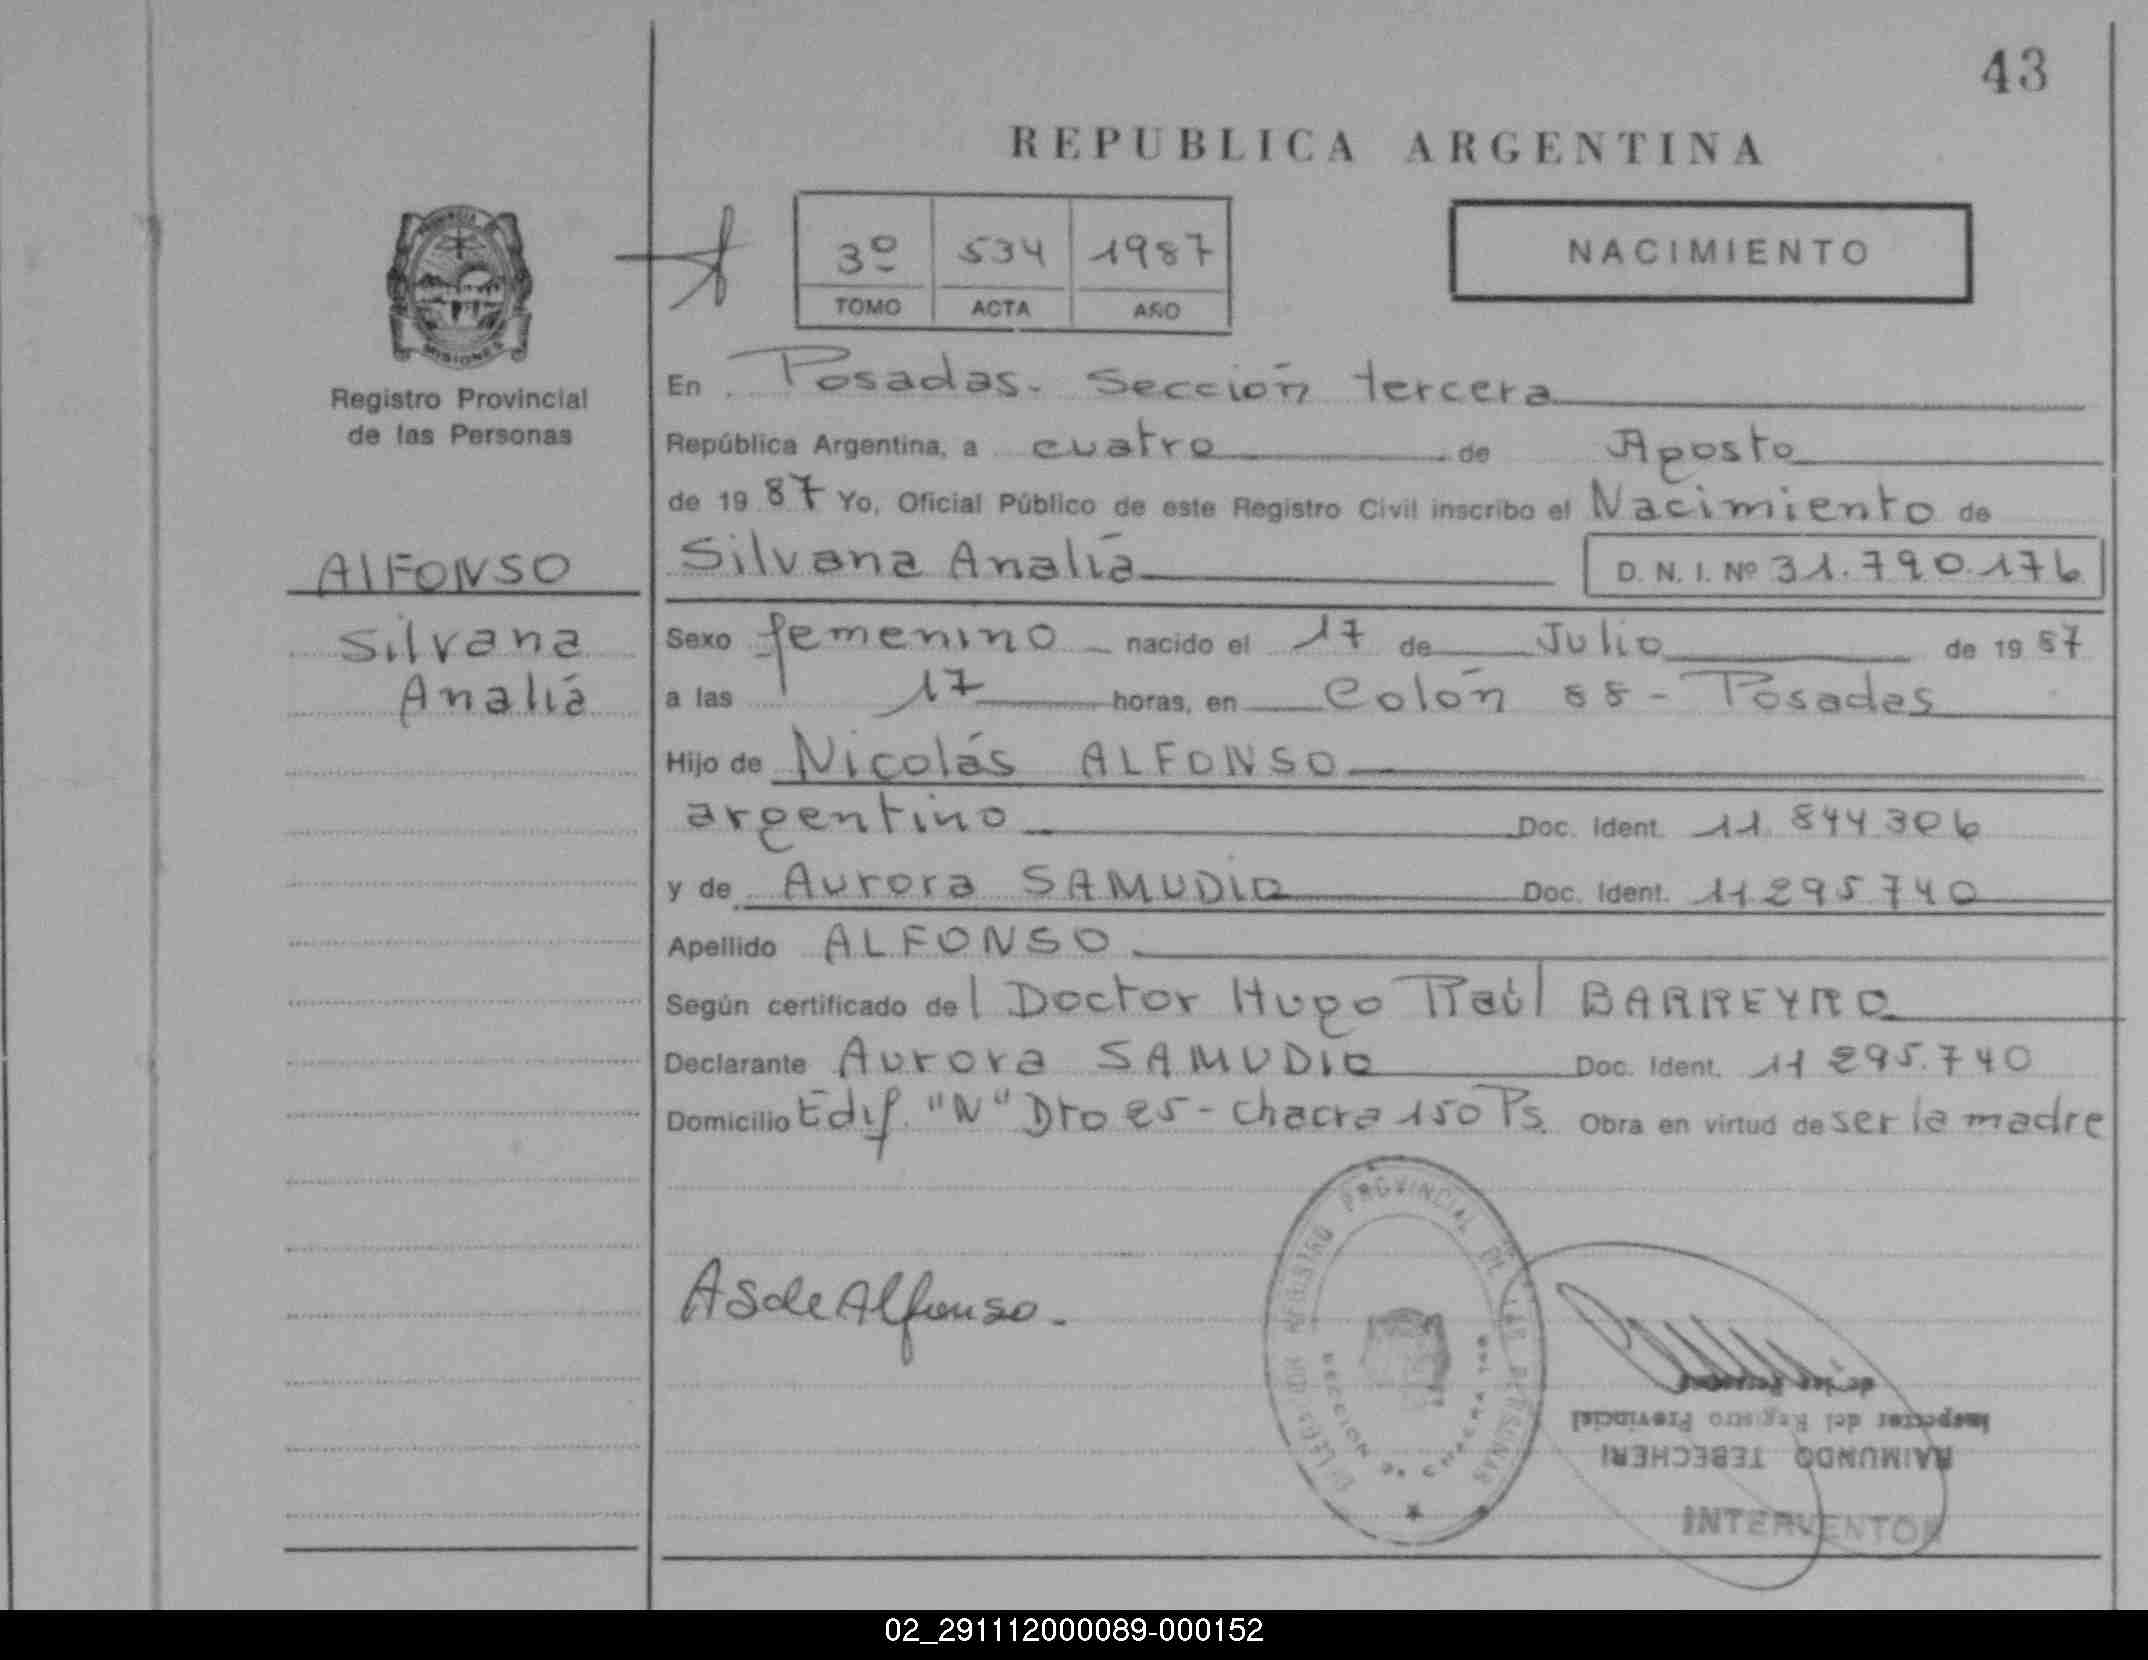 43
REPUBLICA ARGENTINA
3º 534 1987
TOMO ACTA AÑO
NACIMIENTO
MISIONES
Registro Provincial
de las Personas
AlFONSO
Silvana
Analía
En Posadas- Sección tercera
República Argentina, a cuatro de Agosto
de 19 87 Yo, Oficial Público de este Registro Civil inscribo el Nacimiento de
Silvana Analía D. N. I. Nº 31.790.176
Sexo femenino nacido el 17 de Julio de 19 87
a las 17 horas, en Colón 88 - Posadas
Hijo de Nicolás ALFONSO
argentino Doc. Ident. 11.844306
y de Aurora SAMUDIO Doc. Ident. 11295.740
Apellido ALFONSO
Según certificado del Doctor Hugo Raúl BARREYRO
Declarante Aurora SAMUDIO Doc. Ident. 11 295.740
Domicilio Edif. "N" Dto 25 - chacra 150 Ps. Obra en virtud de ser la madre
ASdeAlfonso.
REGISTRO PROVINCIAL DE LAS PERSONAS
SECCION CHACRA
Inspector del Registro Provincial
RAIMUNDO TEBECHERI
INTERVENTOR
02_291112000089-000152